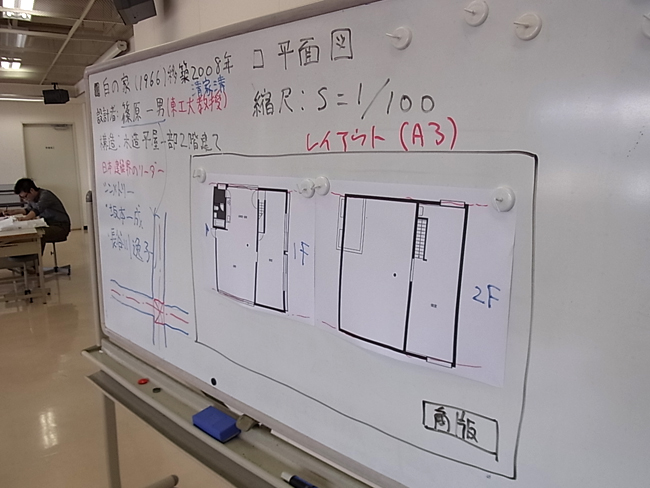 白の家(1966) 移築2008年
清家清
設計者:篠原一男(東工大教授)
構造:木造平屋一部2階建て
日本建築界のリーダー
坂本一成
長谷川逸子
□ 平面図
縮尺:S=1/100
レイアウト(A3)
1F
2F